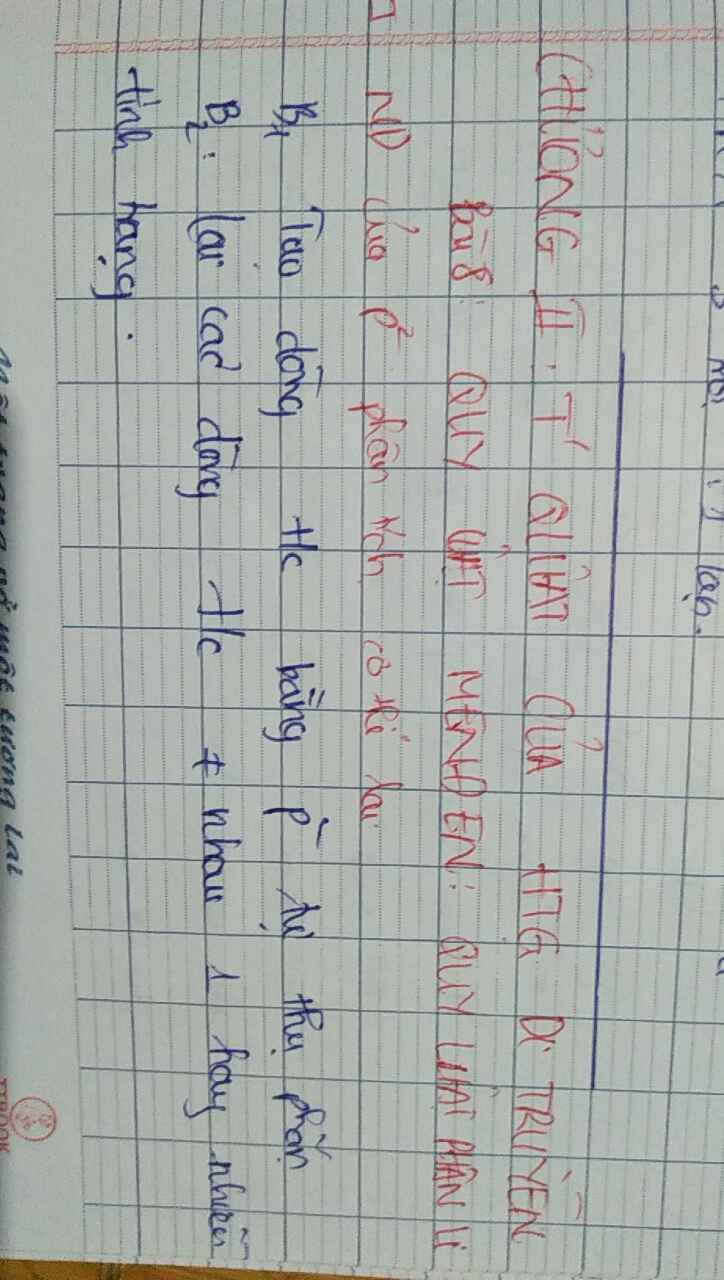 lần.
CHƯƠNG II: T' QLUẬT CỦA HTG DI TRUYỀN
Bài 8: QUY LUẬT MENĐEN: QUY LUẬT PHÂN LI
ND của p² phân tích cơ thể lai
B1 Tạo dòng t/c bằng p² tự thụ phấn
B2: lai các dòng t/c ≠ nhau 1 hay nhiều
tính trạng.
một tương lai